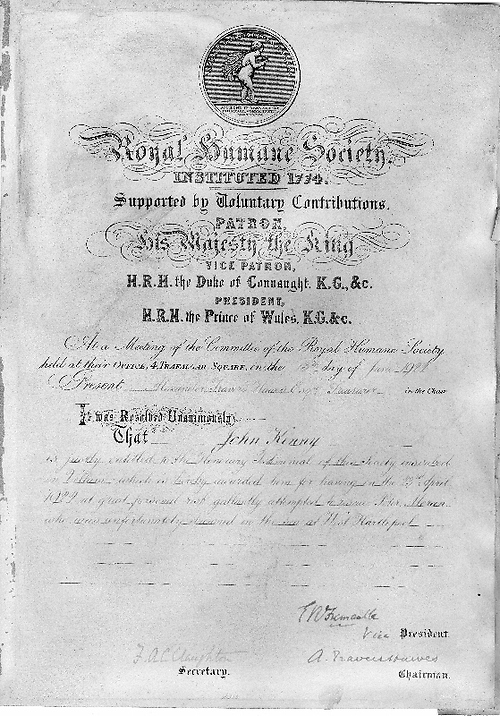 Royal Humane Society.
INSTITUTED 1774.
Supported by Voluntary Contributions.
PATRON,
His Majesty the King
VICE PATRON,
H.R.H. the Duke of Connaught, K.G., &c.
PRESIDENT,
H.R.H. the Prince of Wales, K.G. &c.
At a Meeting of the Committee of the Royal Humane Society
held at their OFFICE, 4, TRAFALGAR SQUARE, on the day of June
Present Alexander Travers Hawes Esqr. Treasurer in the Chair
It was Resolved Unanimously
That John Kenny
is justly entitled to the Honorary Testimonial of this Society inscribed
on Vellum which is hereby awarded him for having on the April
at great personal risk gallantly attempted to
who was unfortunately drowned in the sea at West Hartlepool
Vice President.
F.A.C. Claughton A. Travers Hawes
Secretary. Chairman.